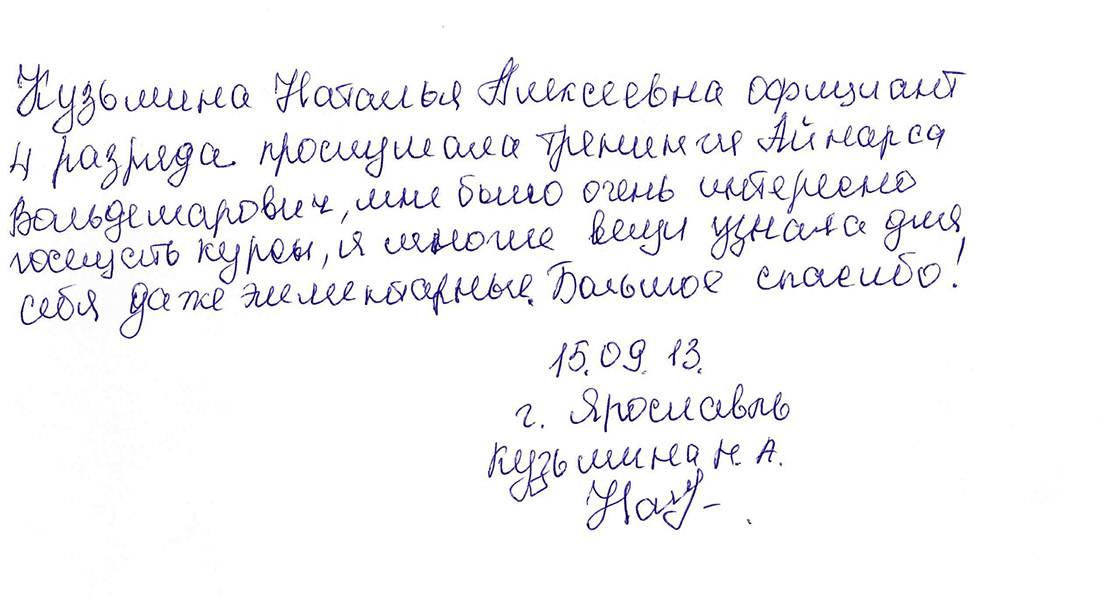 Кузьмина Наталья Алексеевна официант
4 разряда прослушала тренинги Айнарса
Вольдемарович, мне было очень интересно
посещать курсы, я многие вещи узнала для
себя даже элементарные. Большое спасибо!
15.09.13.
г. Ярославль
Кузьмина Н. А.